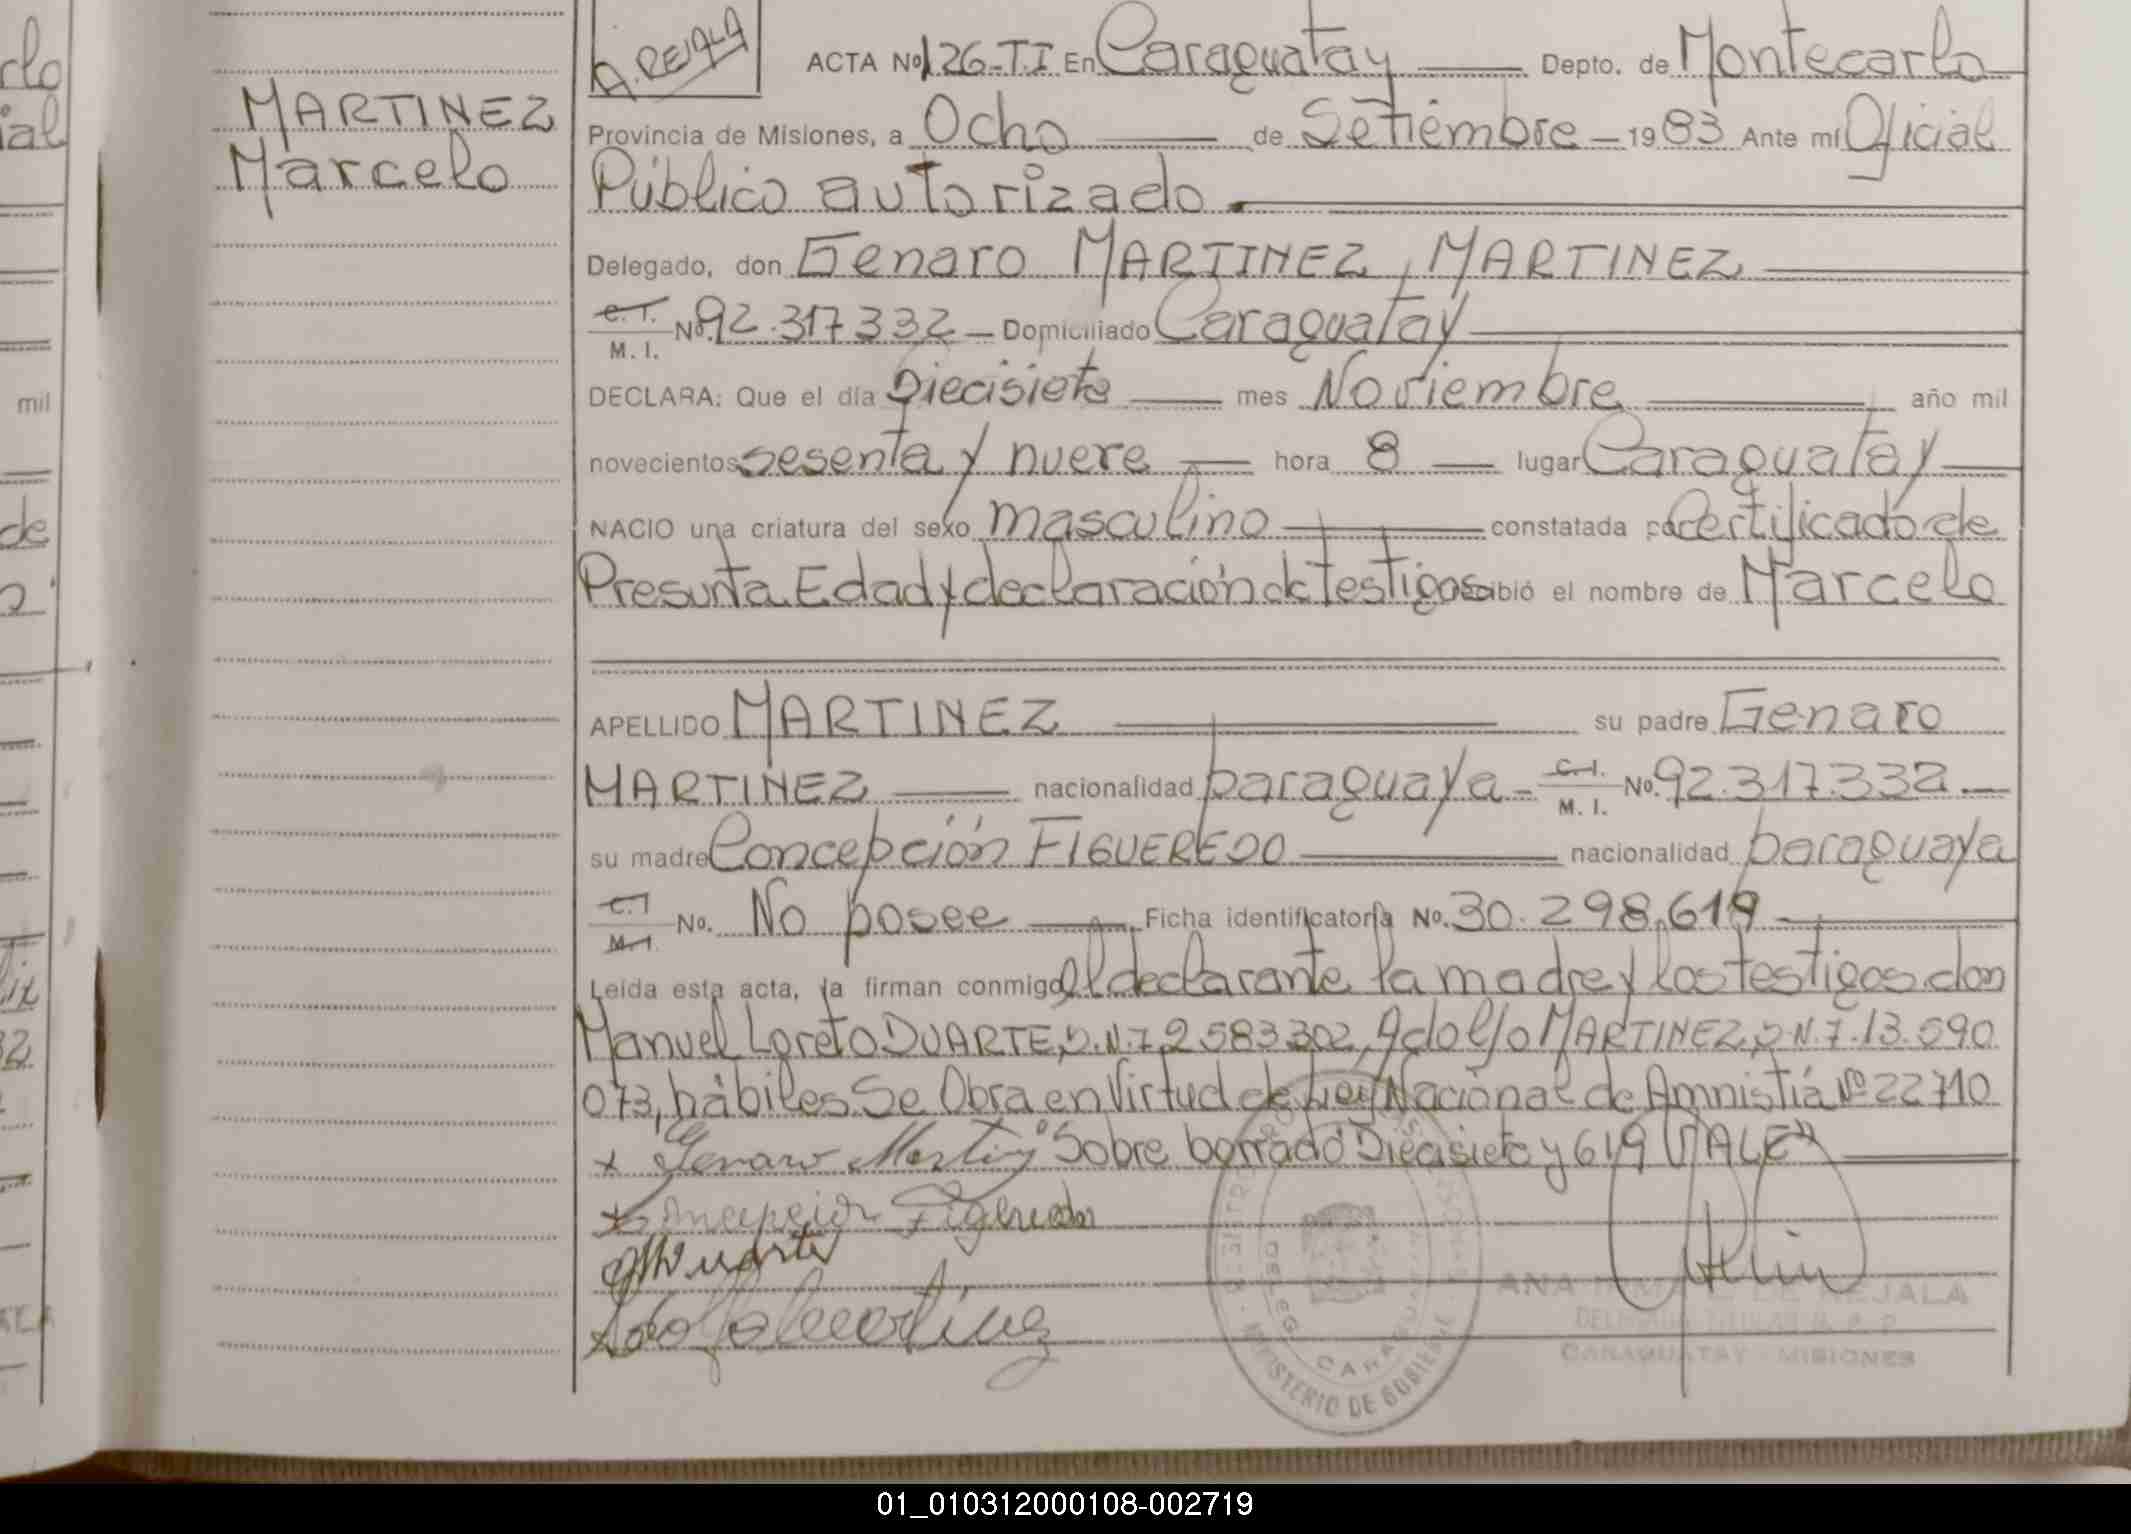 A. REJALA
MARTINEZ
Marcelo
ACTA No 126-T.I En Caraguatay Depto. de Montecarlo
Provincia de Misiones, a Ocho de Setiembre 1983 Ante mí Oficial
Público autorizado.
Delegado, don Genaro MARTINEZ, MARTINEZ
C.I. M. I. No. 92.317.332 Domiciliado Caraguatay
DECLARA: Que el día Diecisiete mes Noviembre año mil
novecientos sesenta y nueve hora 8 lugar Caraguatay
NACIO una criatura del sexo masculino constatada por Certificado de
Presunta Edad y declaración de testigos cibió el nombre de Marcelo
APELLIDO MARTINEZ su padre Genaro
MARTINEZ nacionalidad paraguaya C.I. M. I. No. 92.317.332
su madre Concepción FIGUEREDO nacionalidad paraguaya
C.I M.I. No. No posee Ficha identificatoria No. 30.298.619
Leída esta acta, la firman conmigo el declarante la madre y los testigos don
Manuel Loreto DUARTE, D.N.I. 2.583.302, Adolfo MARTINEZ, D.N.I. 13.590
073, hábiles. Se Obra en Virtud de Ley Nacional de Amnistiá Nº 22710
x Genaro Martinez "Sobre borrado Diecisiete y 619 VALE"
x Concepcion Figueredo
Duarte
x Adolfo Martinez
MINISTERIO DE GOBIERNO
ANA DE REJALA
CARAGUATAY - MISIONES
rlo
ial
mil
de
01_010312000108-002719